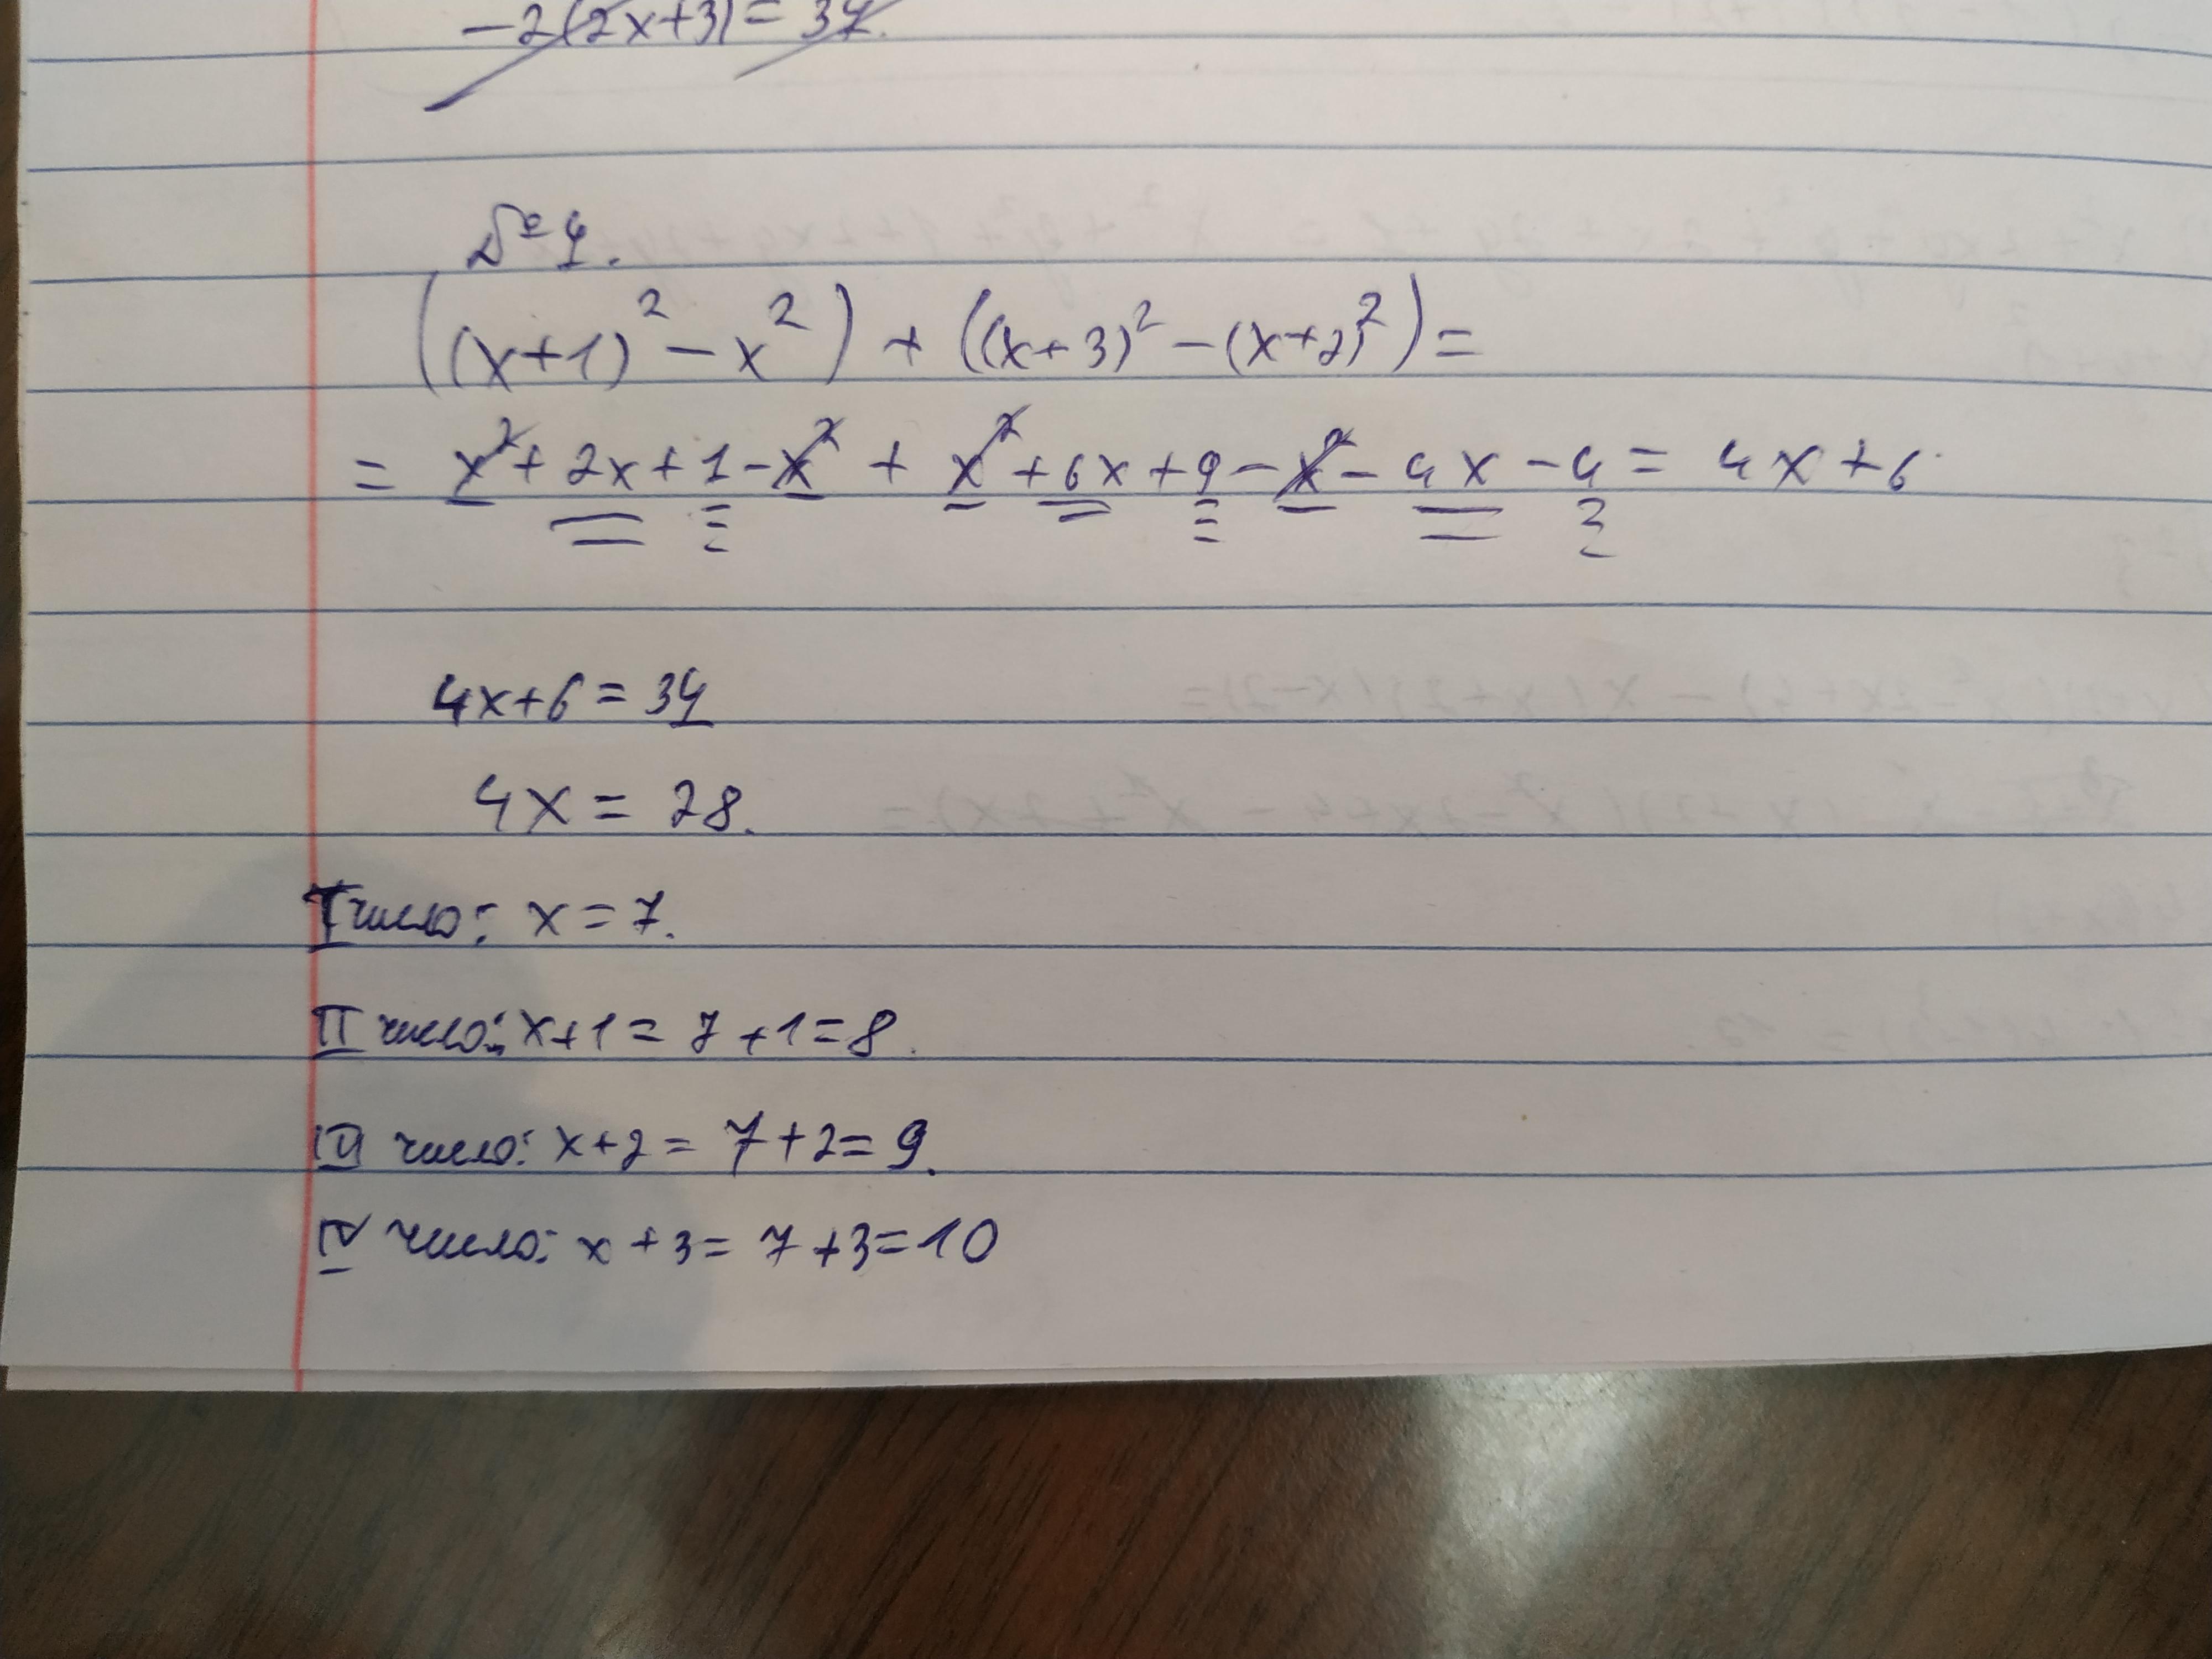 -2(2x+3)=34.
№4.
((x+1)² - x²) + ((x+3)² - (x+2)²) =
= x² + 2x + 1 - x² + x² + 6x + 9 - x² - 4x - 4 = 4x + 6
4x+6 = 34
4x = 28.
I число: x = 7.
II число: x+1 = 7+1=8.
III число: x+2 = 7+2= 9.
IV число: x+3 = 7+3=10